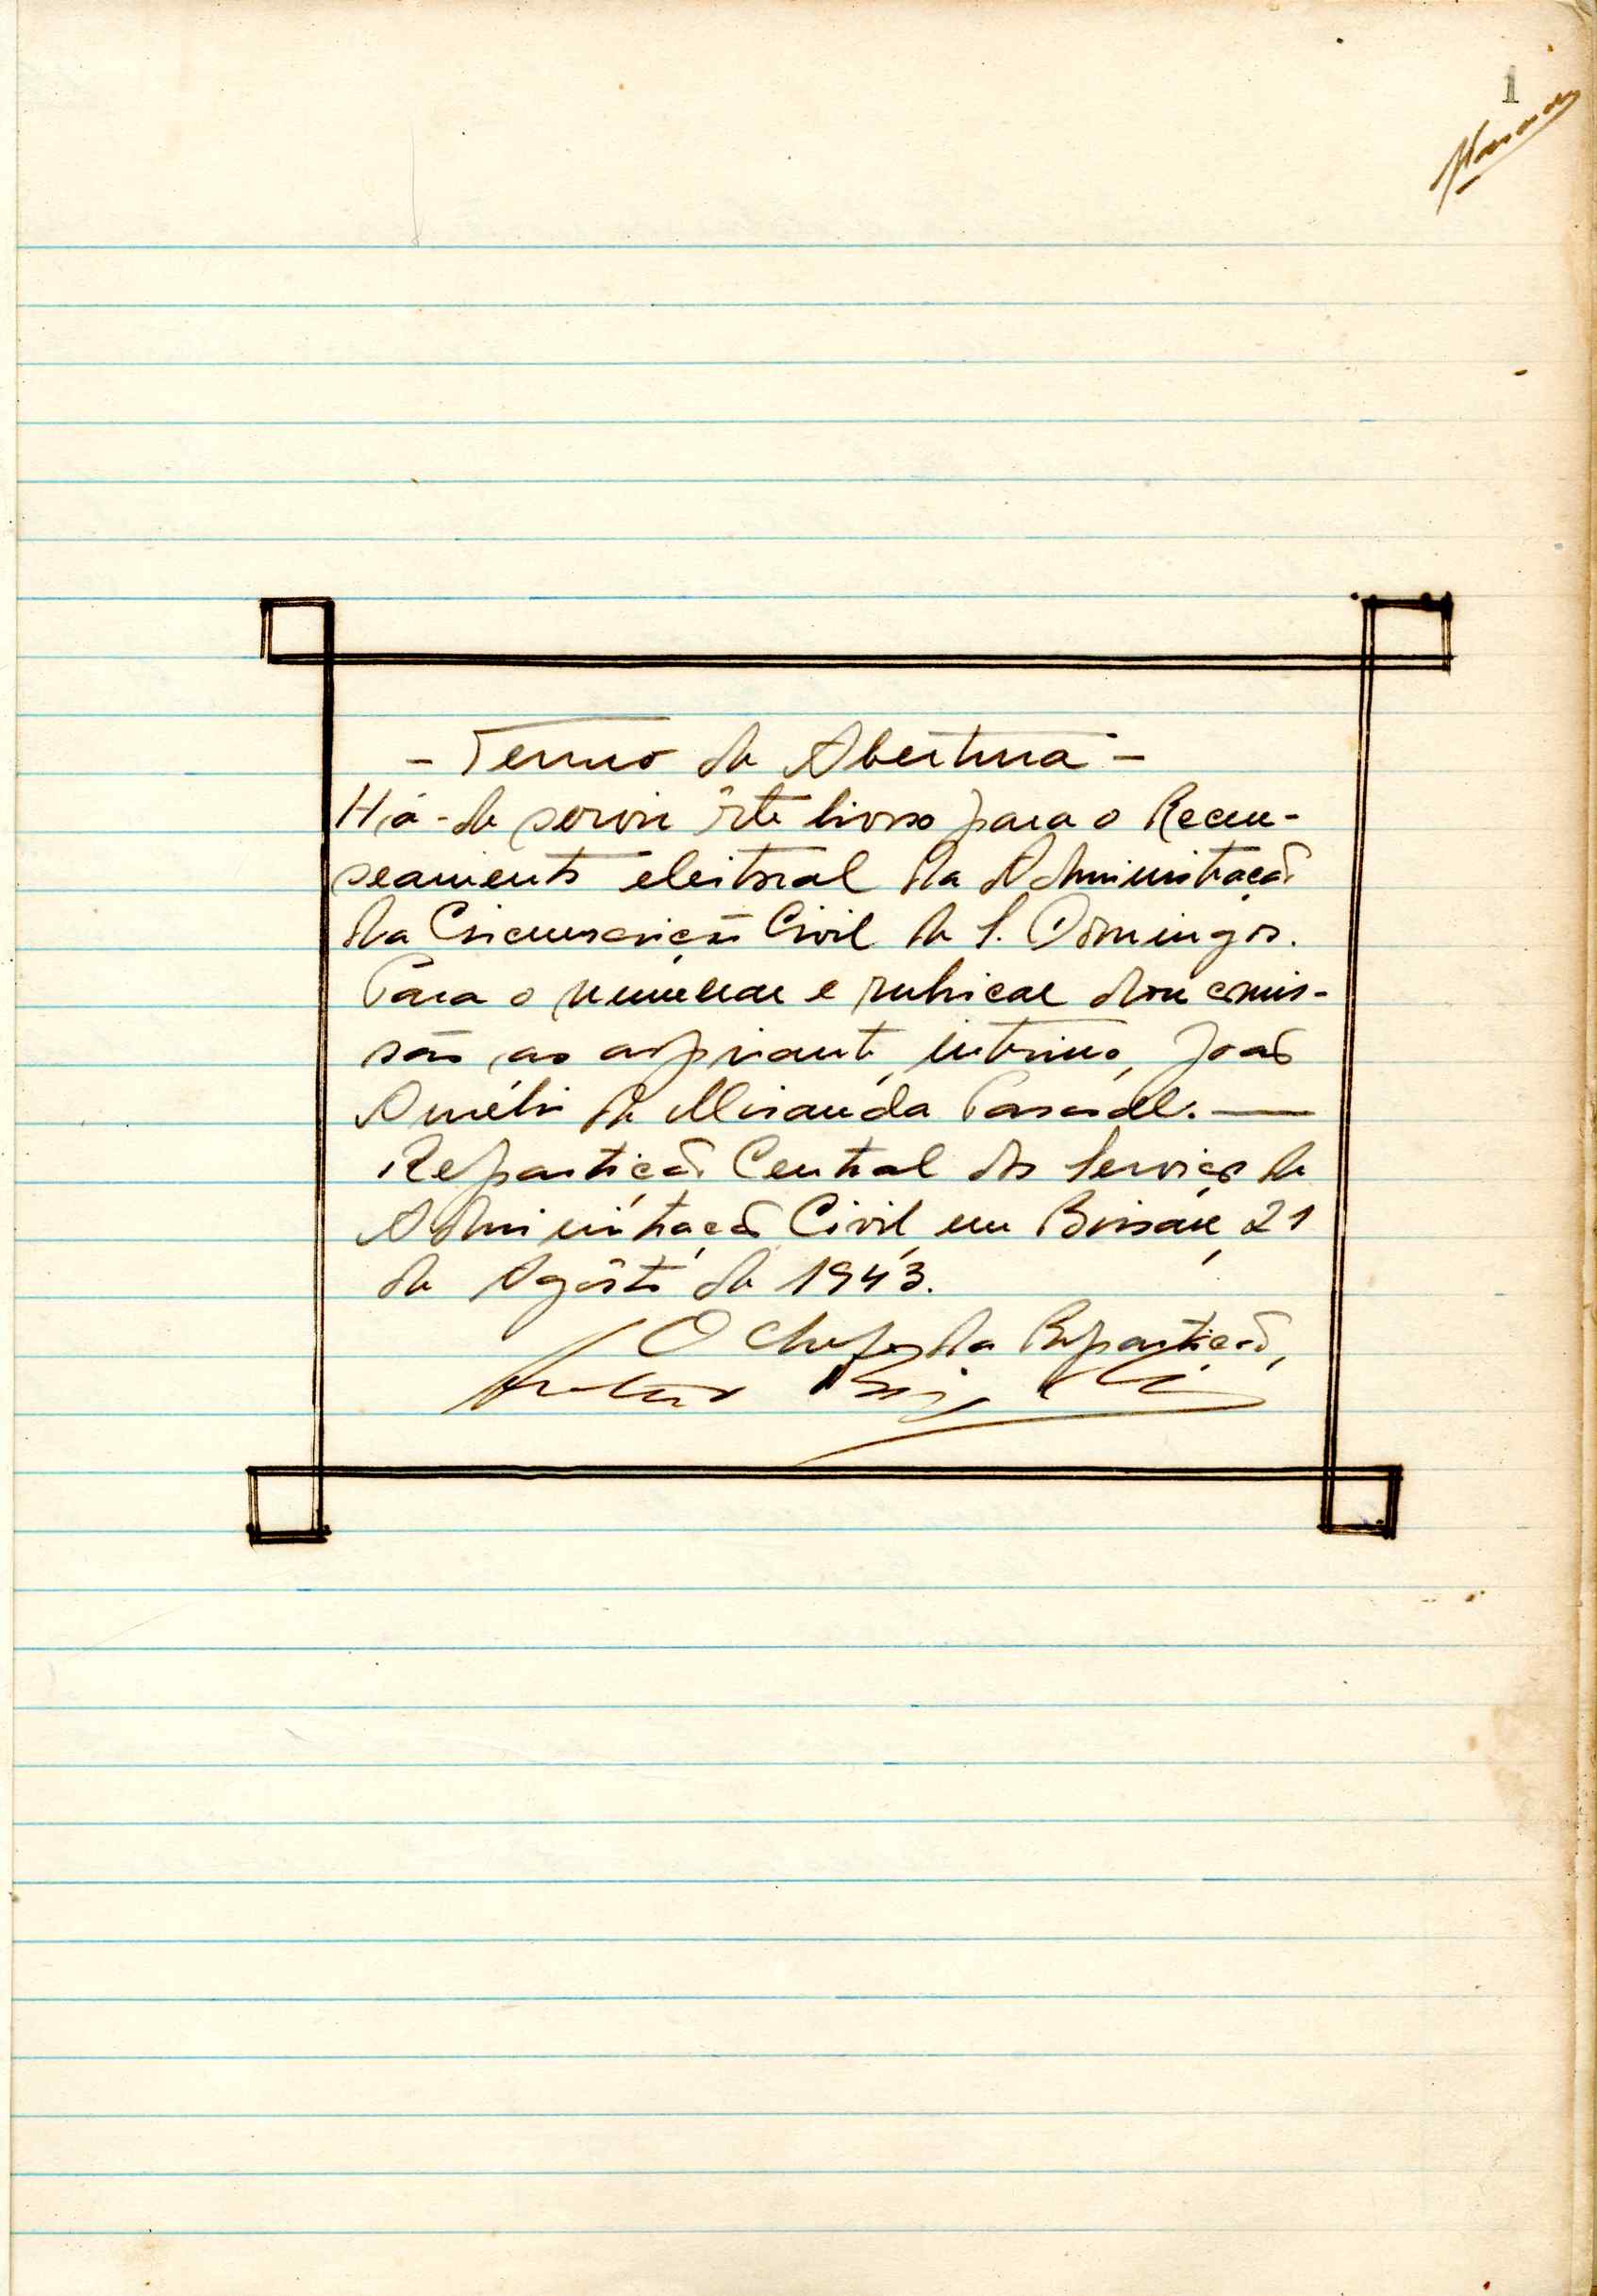 1
- Termo de Abertura -
Há-de servir êste livro para o Recen-
seamento eleitoral da Administração
da Circunscrição Civil de S. Domingos.
Para o numerar e rubricar dou comis-
são ao aspirante, interino, João
Amélio de Miranda
Repartição Central dos Serviços de
Administração Civil, em Bissau, 21
de Agôsto de 1943.
O Chefe da Repartição,